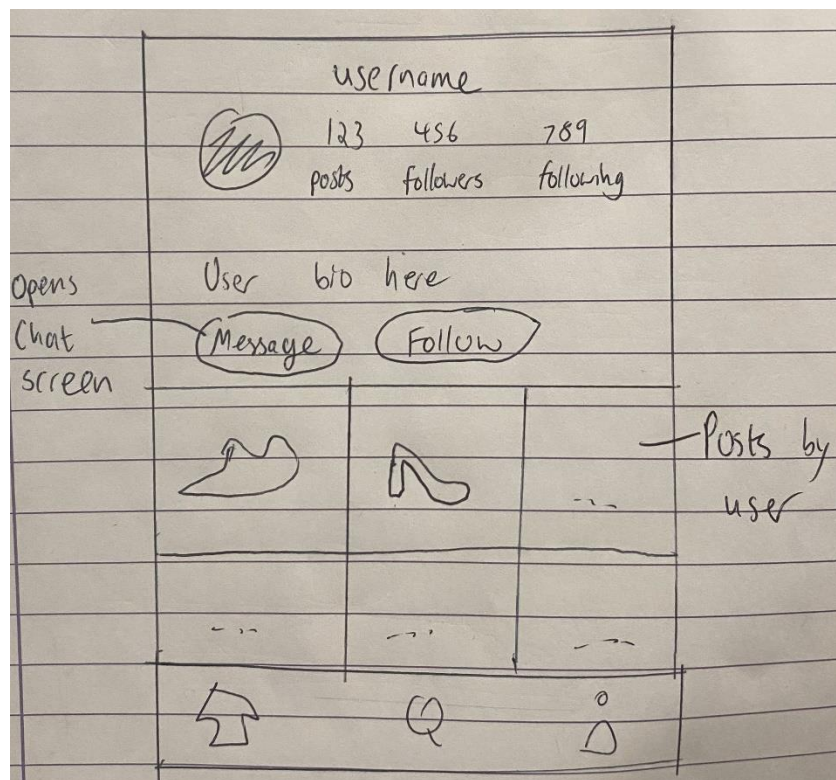 username
123 456 789
posts followers following
User bio here
Opens
Chat
screen
Message Follow
Posts by
user